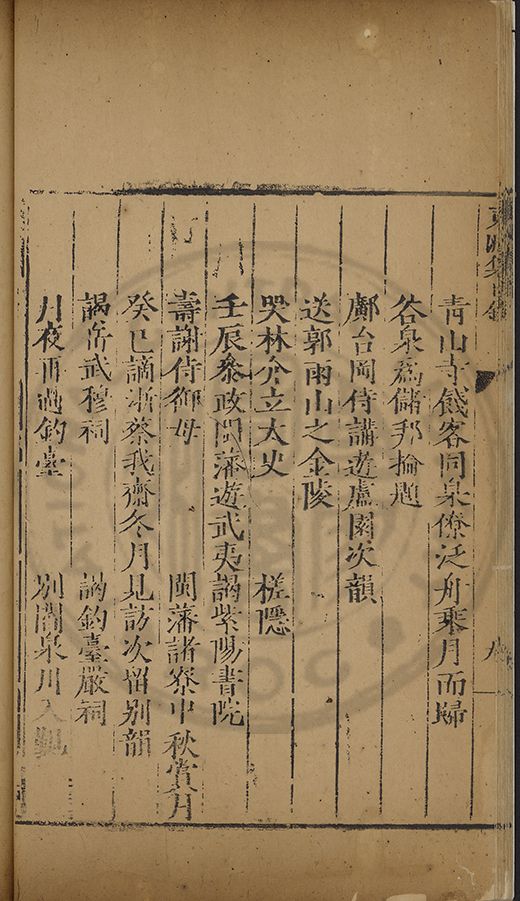 青山寺餞客同臬僚泛舟乘月而歸
谷泉為儲邦掄題
鄺台岡侍講遊盧園次韻
送郭雨山之金陵
哭林介立太史 槎隱
壬辰叅政閩藩遊武夷謁紫陽書院
壽謝侍御母 閩藩諸寮中秋賞月
癸巳謫浙蔡我齋冬月見訪次留别韻
謁岳武穆祠 謁釣臺嚴祠
月夜再過釣臺 别聞泉川入覲